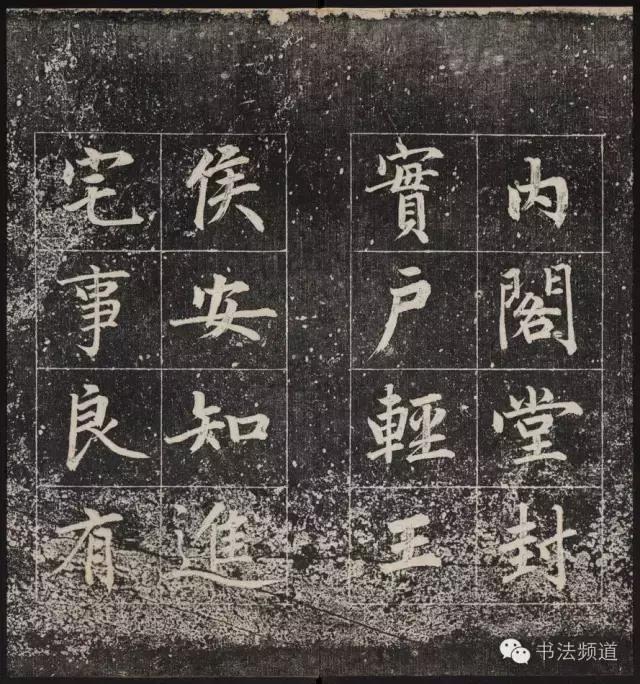 内閣堂封
實戶輕王
侯安知進
宅事良有
书法频道